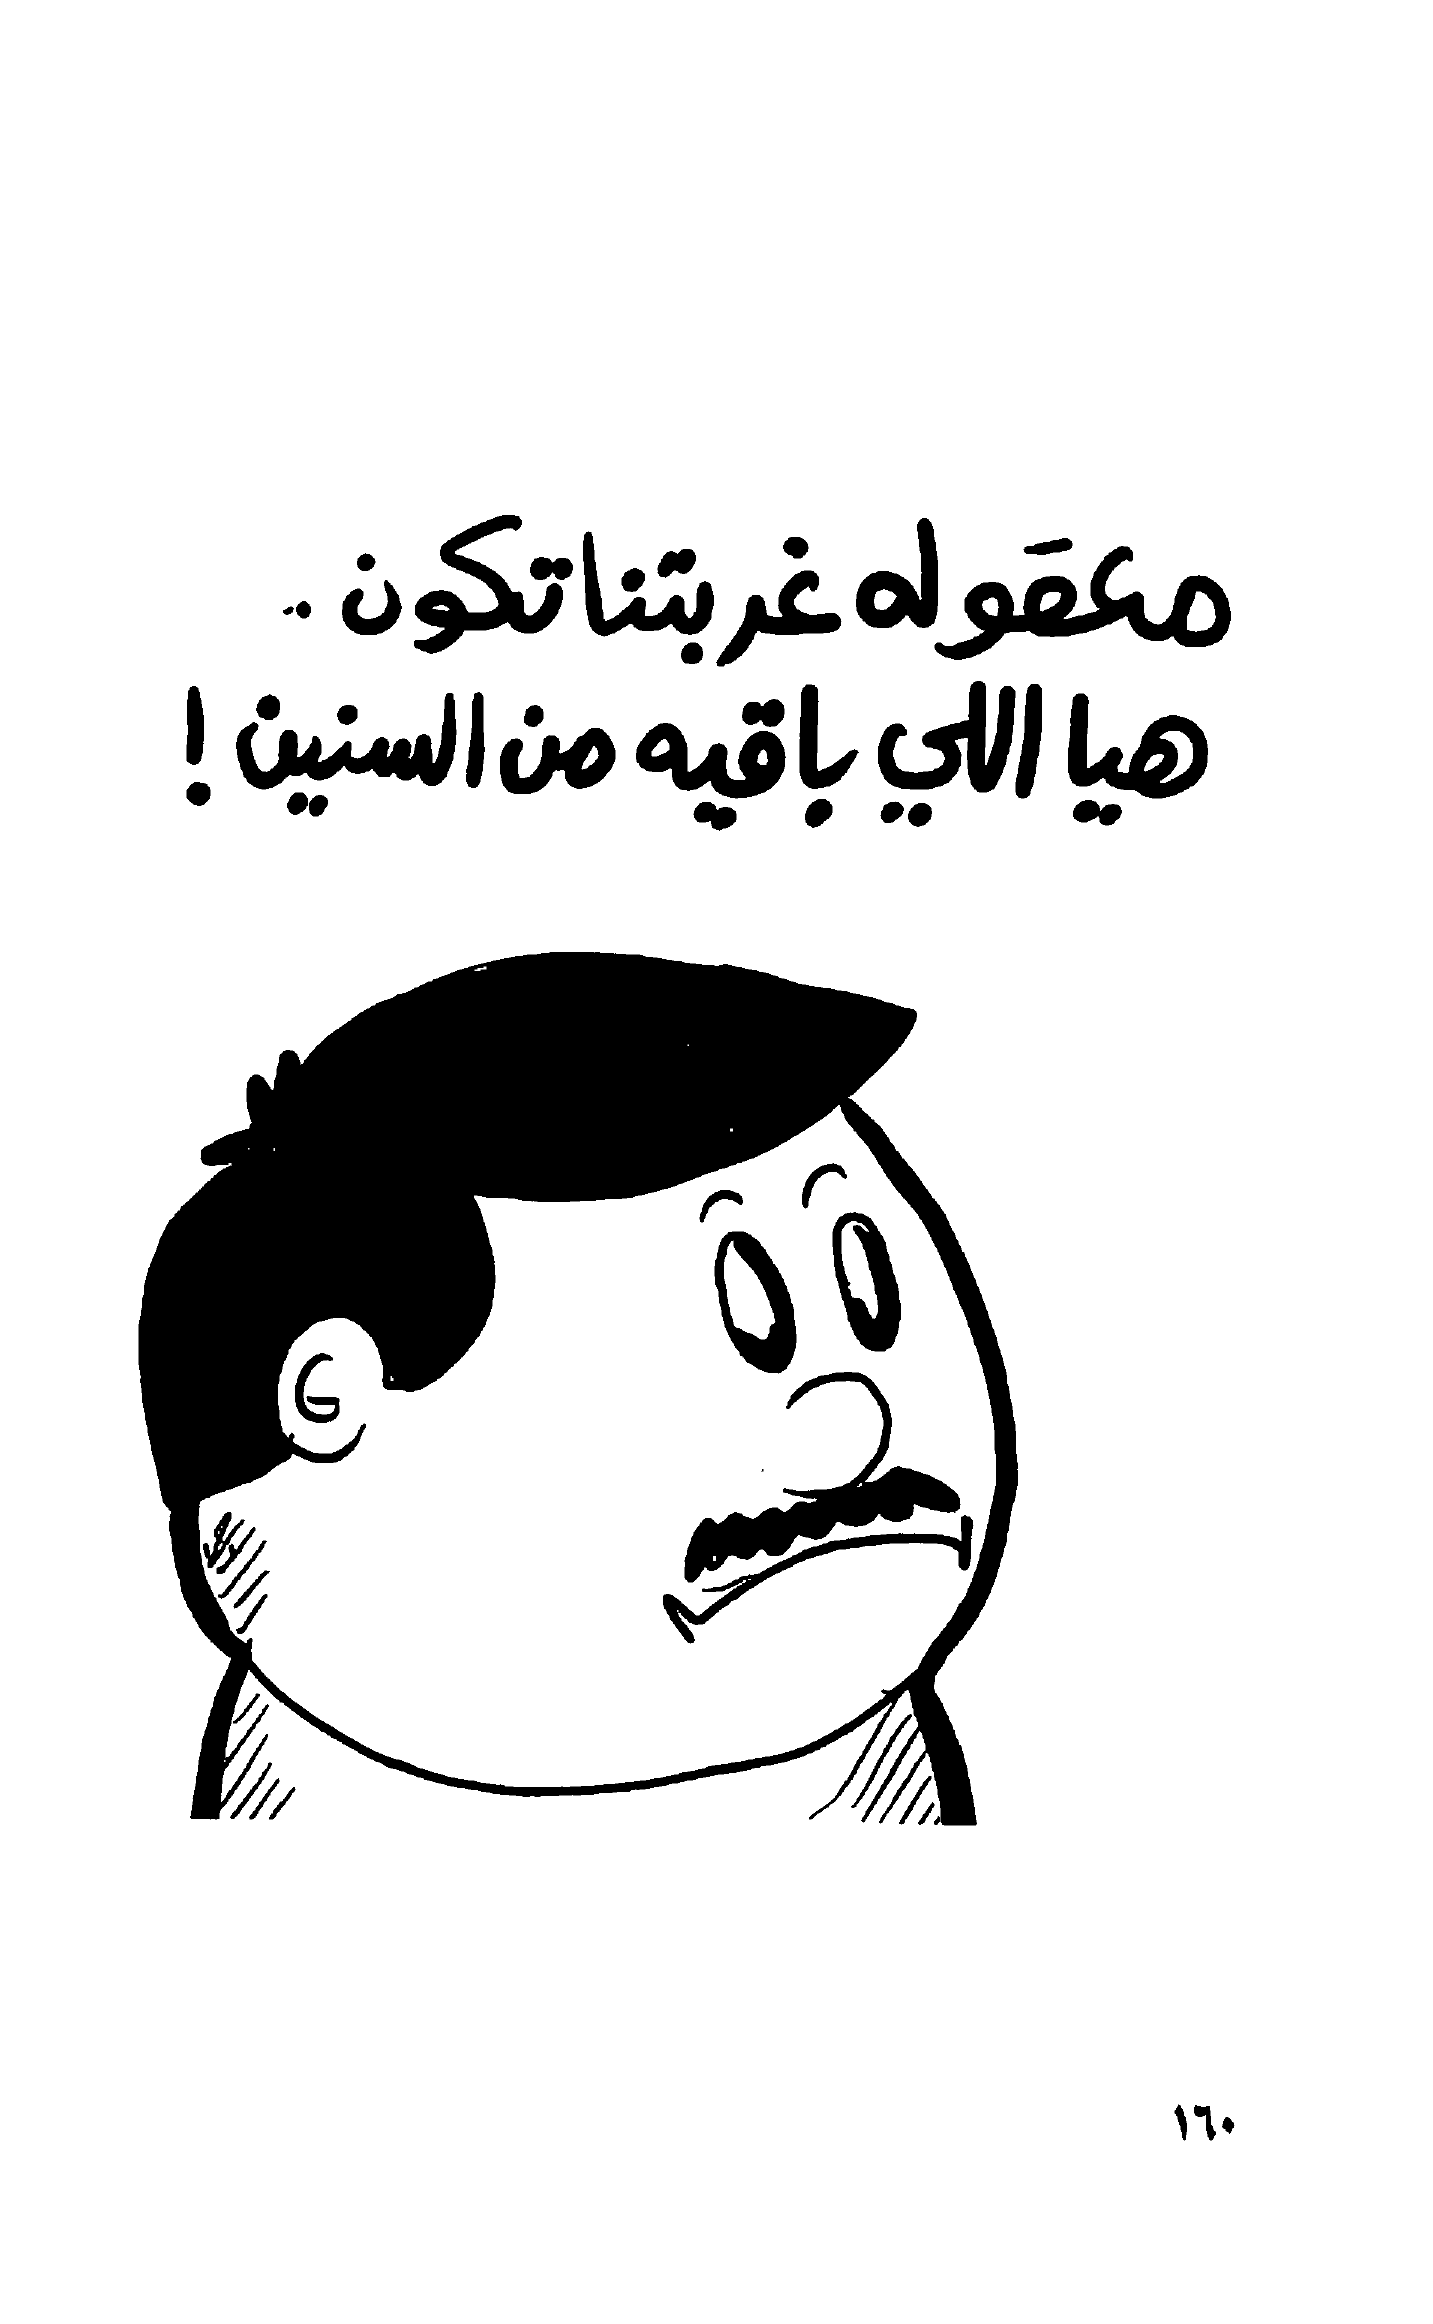 معقَوله غربتنا تكون ..
هيا اللي باقيه من السنين !
١٦٠